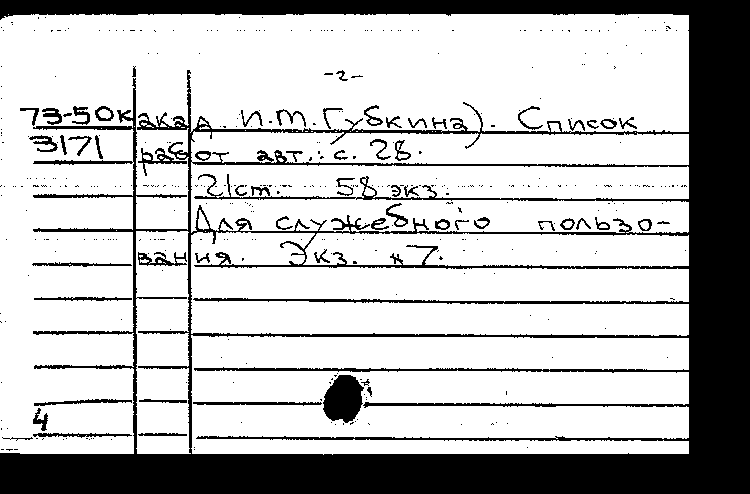 -2-
73-50к акад. И.М.Губкина). Список
3171 работ авт.: с. 28.
21ст. 58 экз.
Для служебного пользо-
вания. Экз. №7.
4